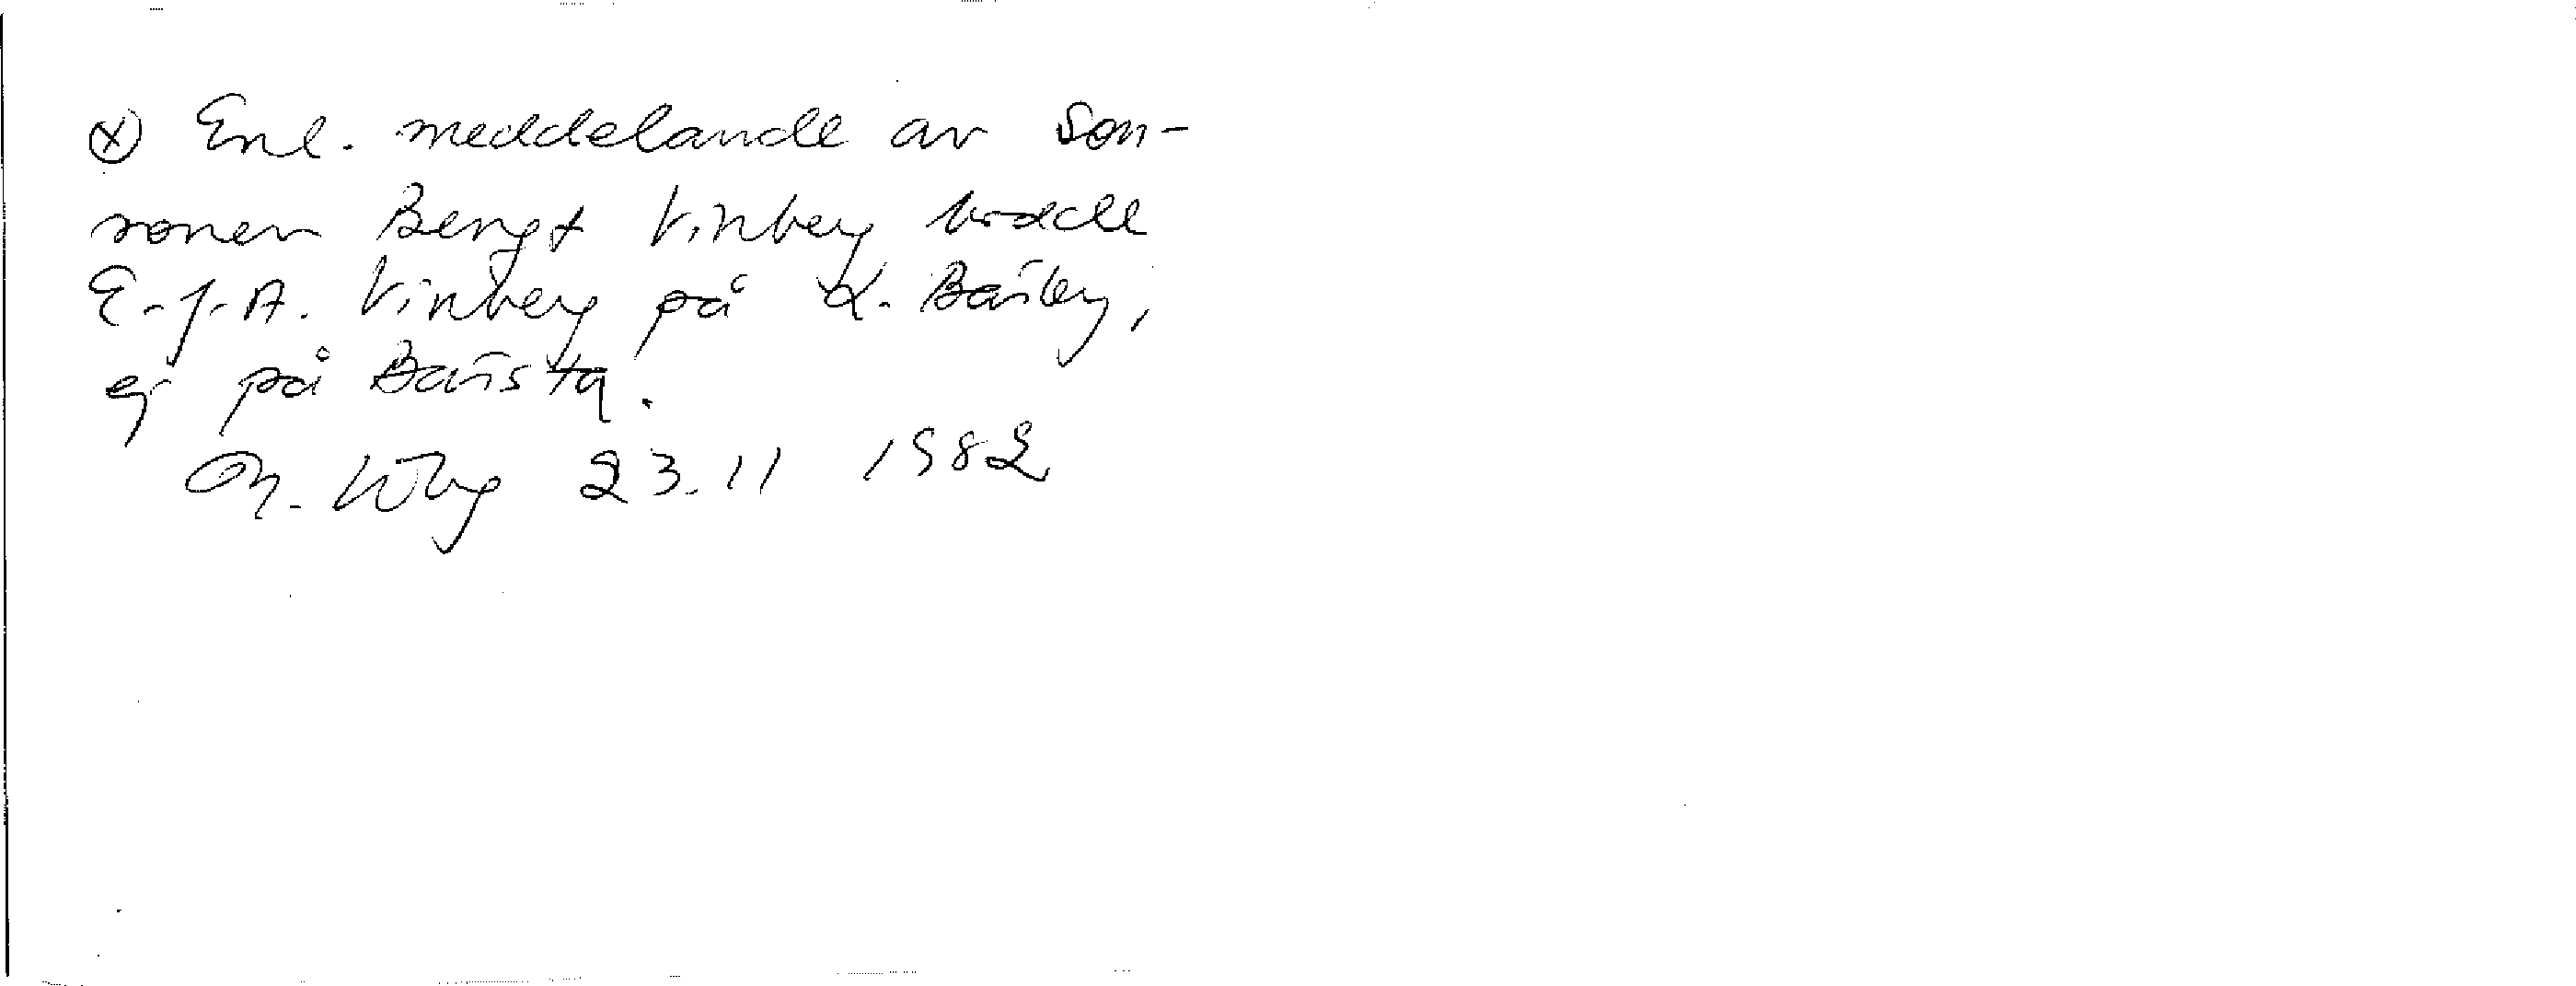 ⓧ Enl. meddelande av son-
sonen Bengt Vinberg bodde
E.J.A. Vinberg på L. Bärby,
ej på Bärsta.
23.11 1982